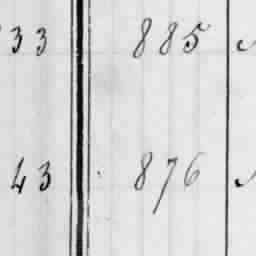 33 885
43 876